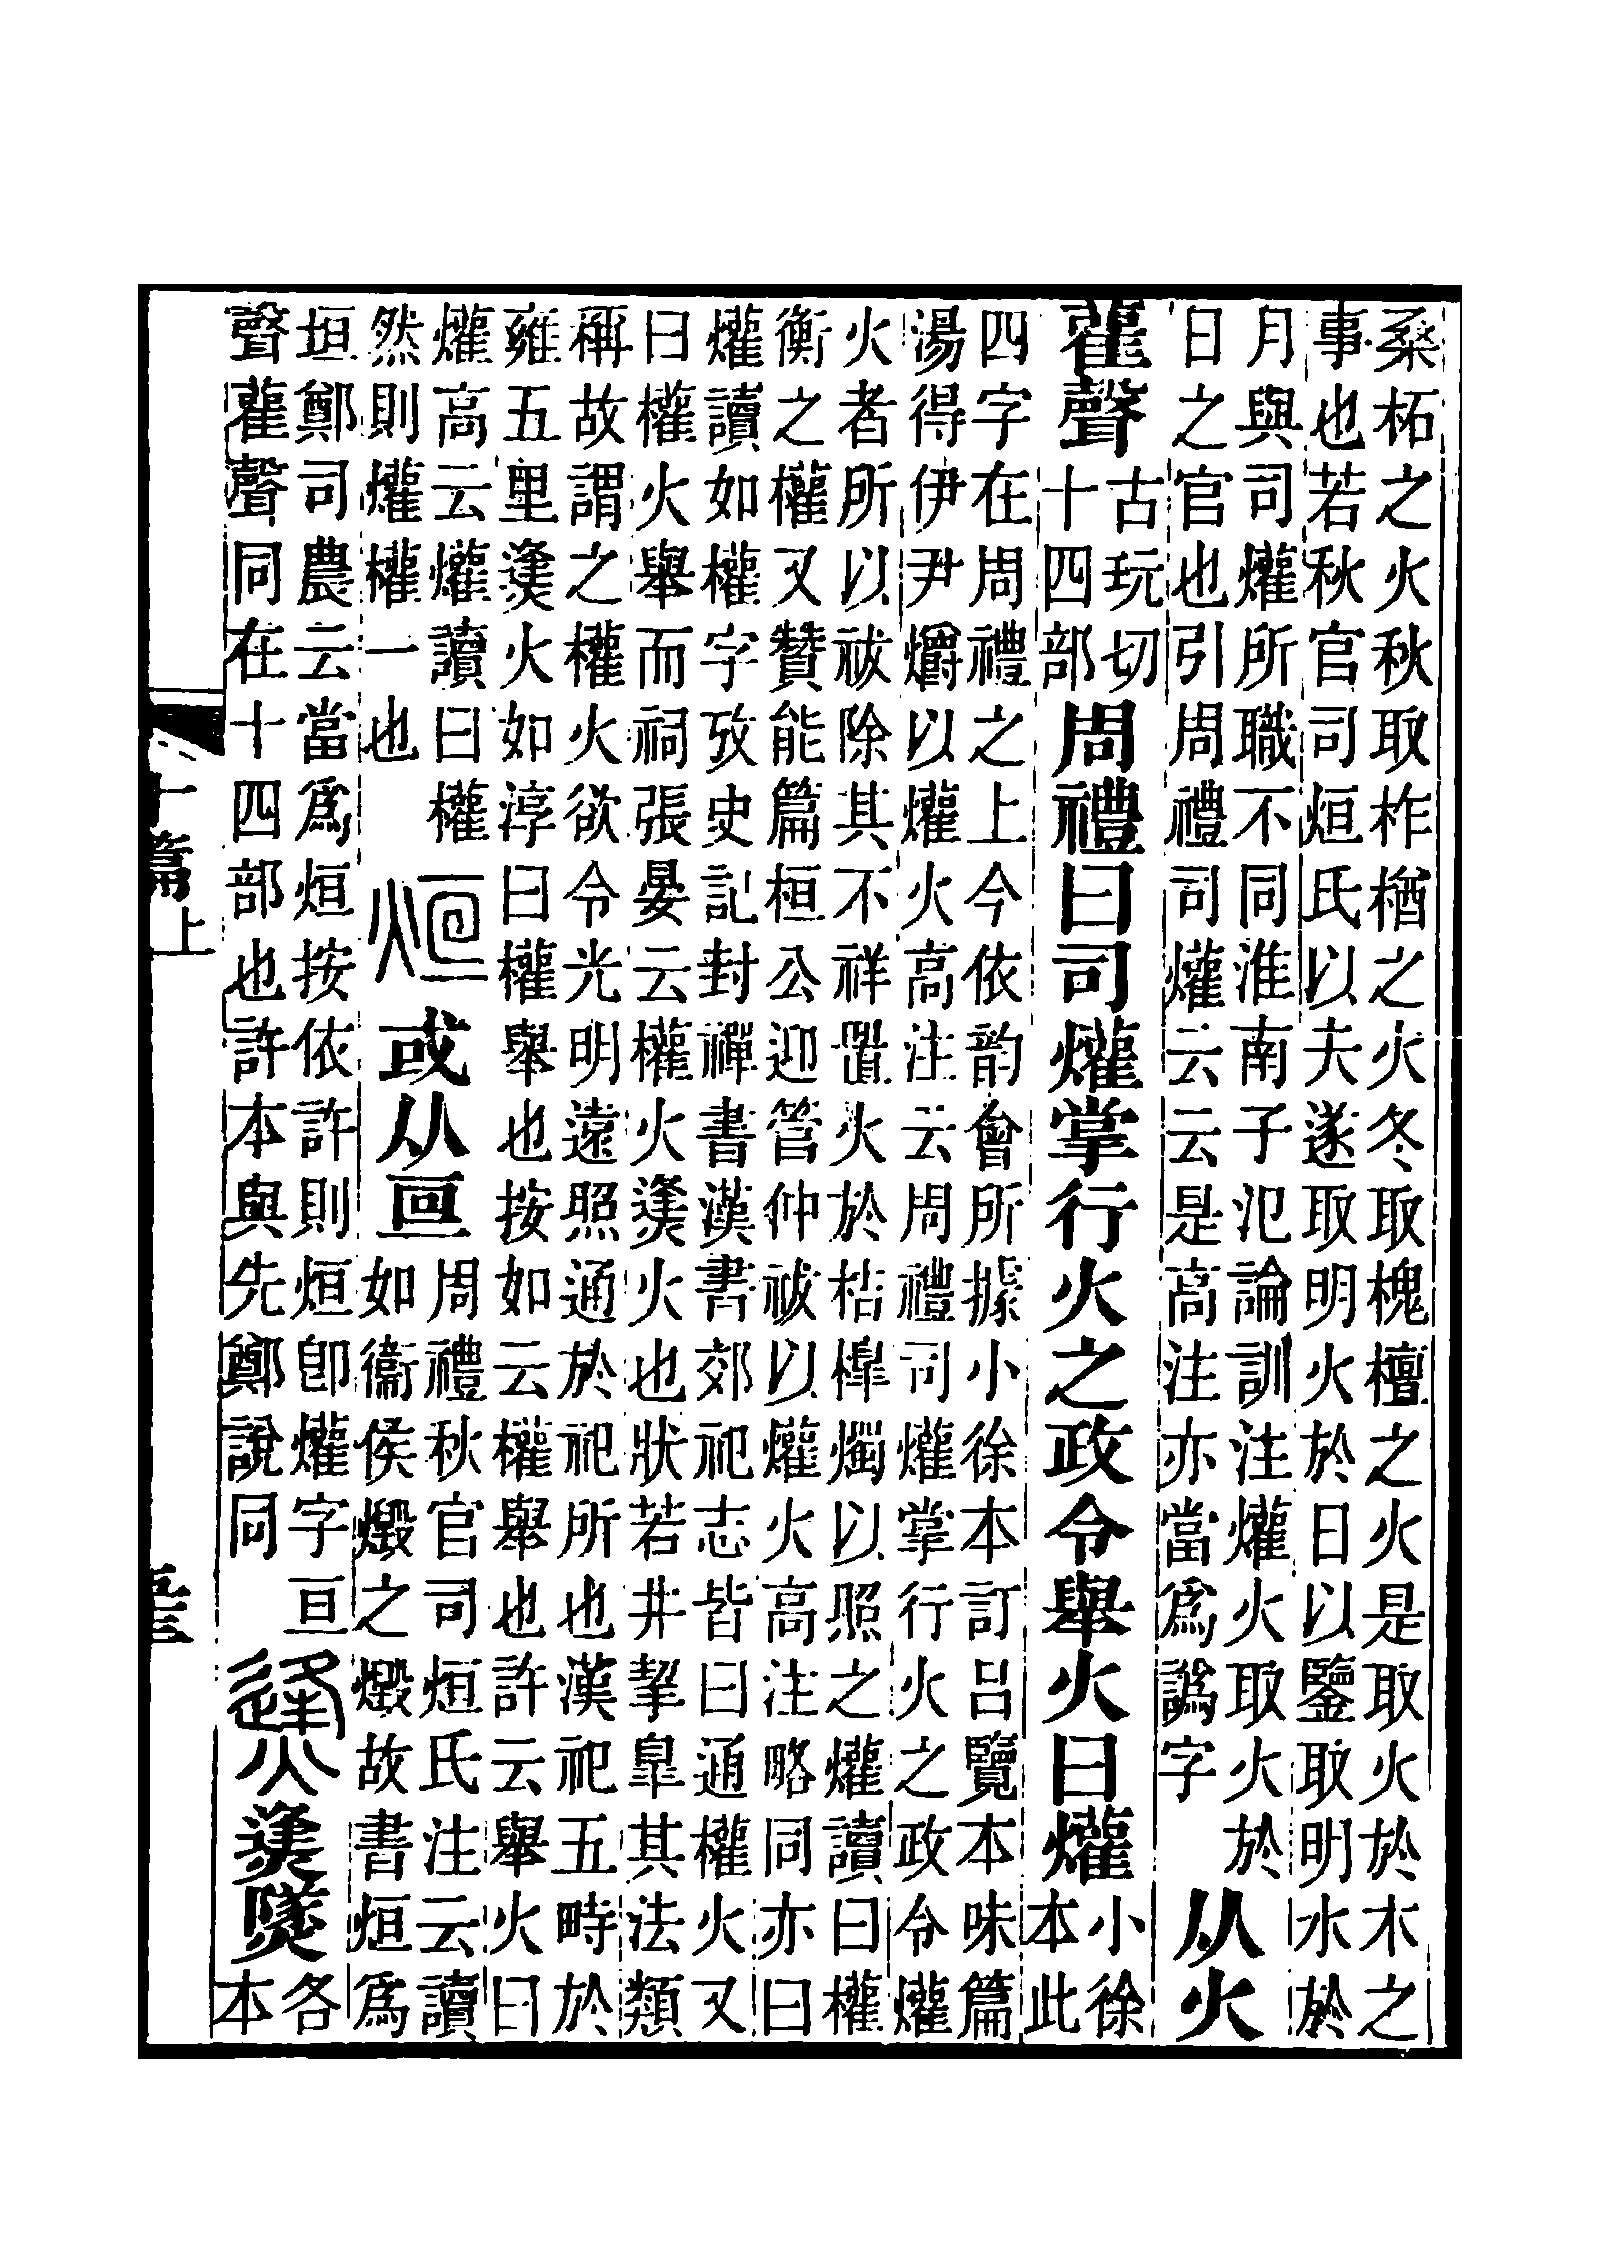 桑柘之火秋取柞楢之火冬取槐檀之火是取火於木之
事也若秋官司烜氏以夫遂取明火於日以鑒取明水於
月與司爟所職不同淮南子氾論訓注爟火取火於
日之官也引周禮司爟云云是高注亦當爲譌字
从火
雚聲
古玩切
十四部
周禮曰司爟掌行火之政令舉火曰爟
小徐
本此
四字在周禮之上今依韵會所據小徐本訂呂覽本味篇
湯得伊尹爝以爟火高注云周禮司爟掌行火之政令爟
火者所以祓除其不祥置火於桔槹燭以照之爟讀曰權
衡之權又贊能篇桓公迎管仲祓以爟火高注略同亦曰
爟讀如權字攷史記封禪書漢書郊祀志皆曰通權火又
曰權火舉而祠張晏云權火㷭火也狀若井挈皐其法類
稱故謂之權火欲令光明遠照通於祀所也漢祀五畤於
雍五里㷭火如淳曰權舉也按如云權舉也許云舉火曰
爟高云爟讀曰權
然則爟權一也
烜或从亘
周禮秋官司烜氏注云讀
如衞侯燬之燬故書烜爲
垣鄭司農云當爲烜按依許則烜卽爟字亘
聲雚聲同在十四部也許本與先鄭說同
㷭㷭
各
本
十篇上